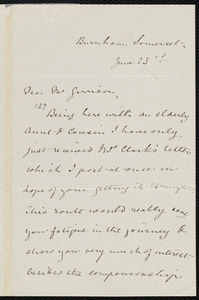 Burnham, Somerset
June 23rd
Dear Mr Garrison,
Being here with an elderly
Aunt & Cousin I have only
just received Mr Clark's letter
which I post at once in
hope of your getting it
This route would really save
you fatigue in the journey &
show you very much of interest
besides the companionship